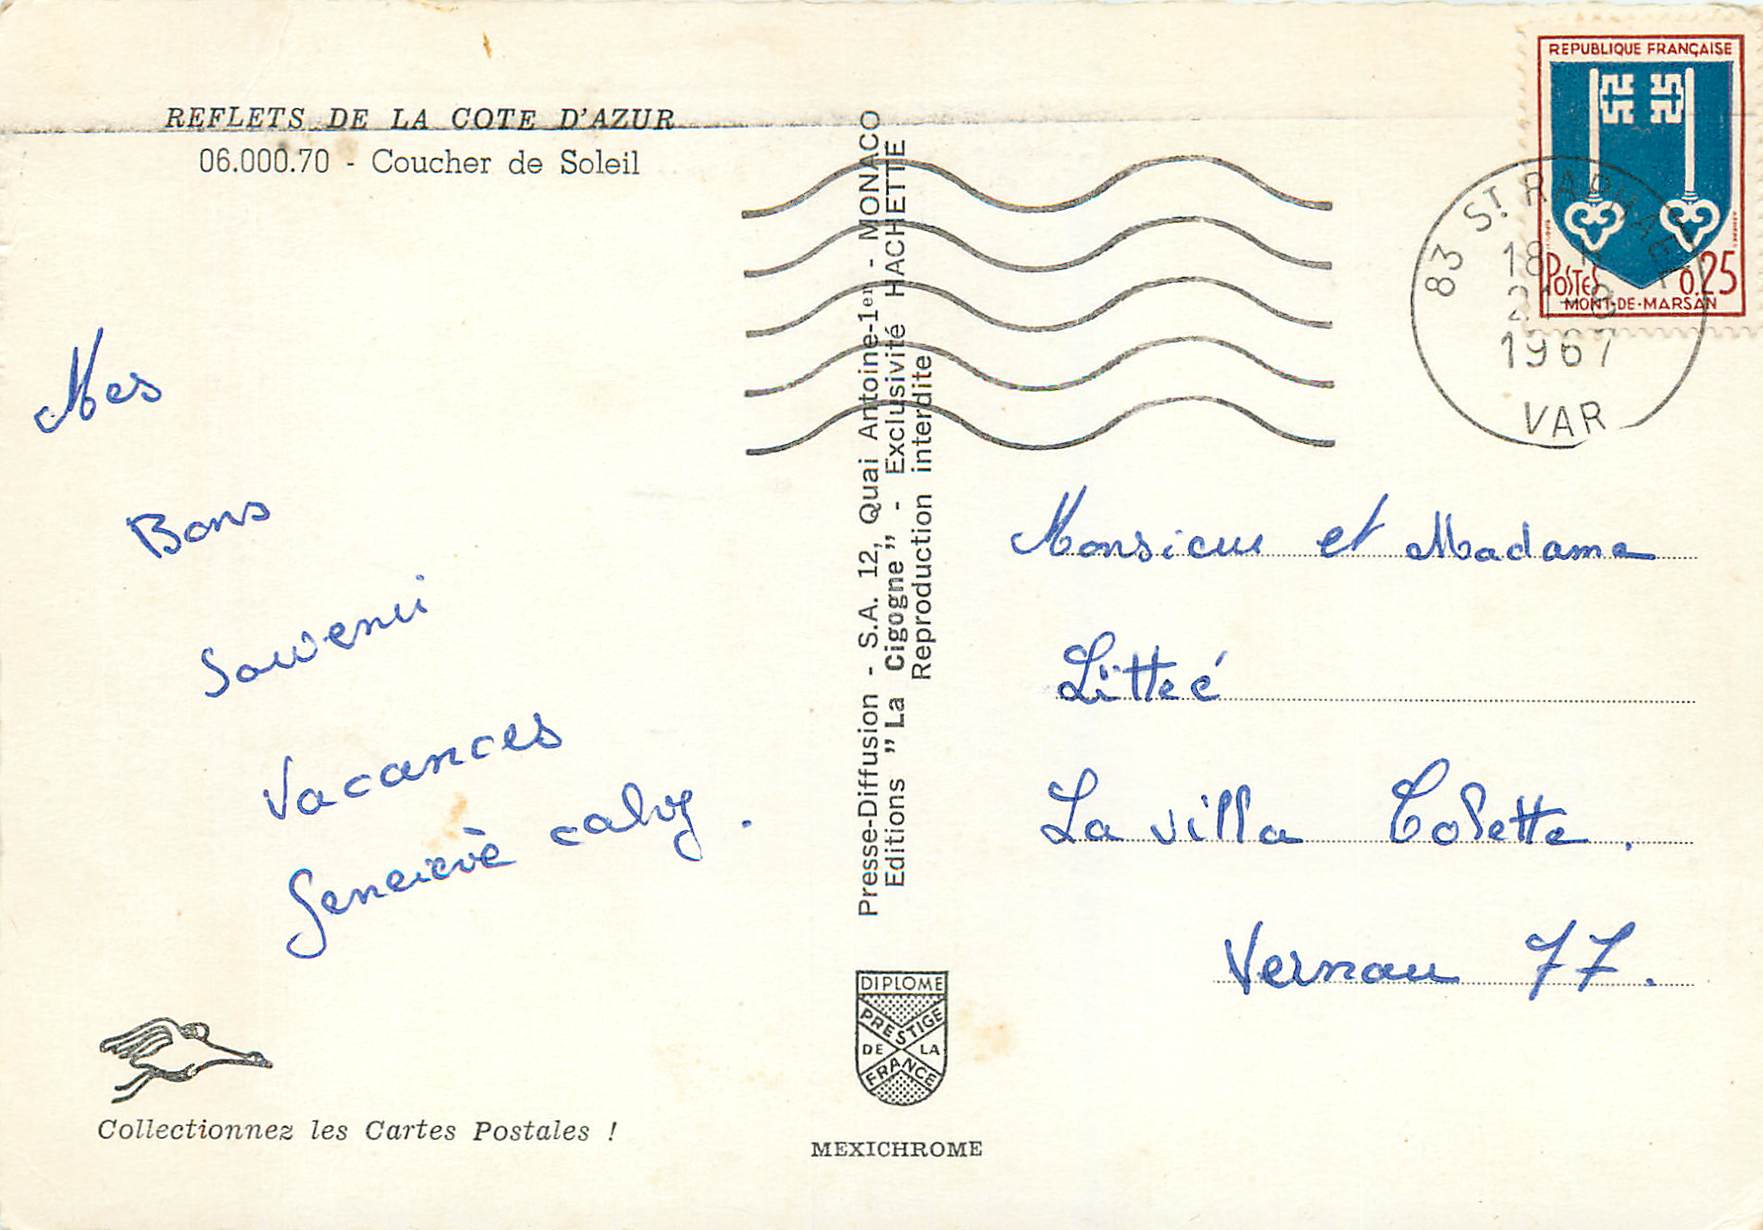 REFLETS DE LA COTE D'AZUR
06.000.70 - Coucher de Soleil
Mes
Bons
Souvenir
Vacances
Geneviève calvy .
Collectionnez les Cartes Postales !
Presse-Diffusion - S.A. 12, Quai Antoine-1er - MONACO
Editions "La Cigogne" - Exclusivité HACHETTE
Reproduction interdite
DIPLOME
PRESTIGE
DE LA
FRANCE
MEXICHROME
REPUBLIQUE FRANÇAISE
POSTES 0.25
MONT-DE-MARSAN
83 ST RAPHAEL
18 H
21-8
1967
VAR
Monsieur et Madame
Litteé
La villa Colette .
Vernou 77 .